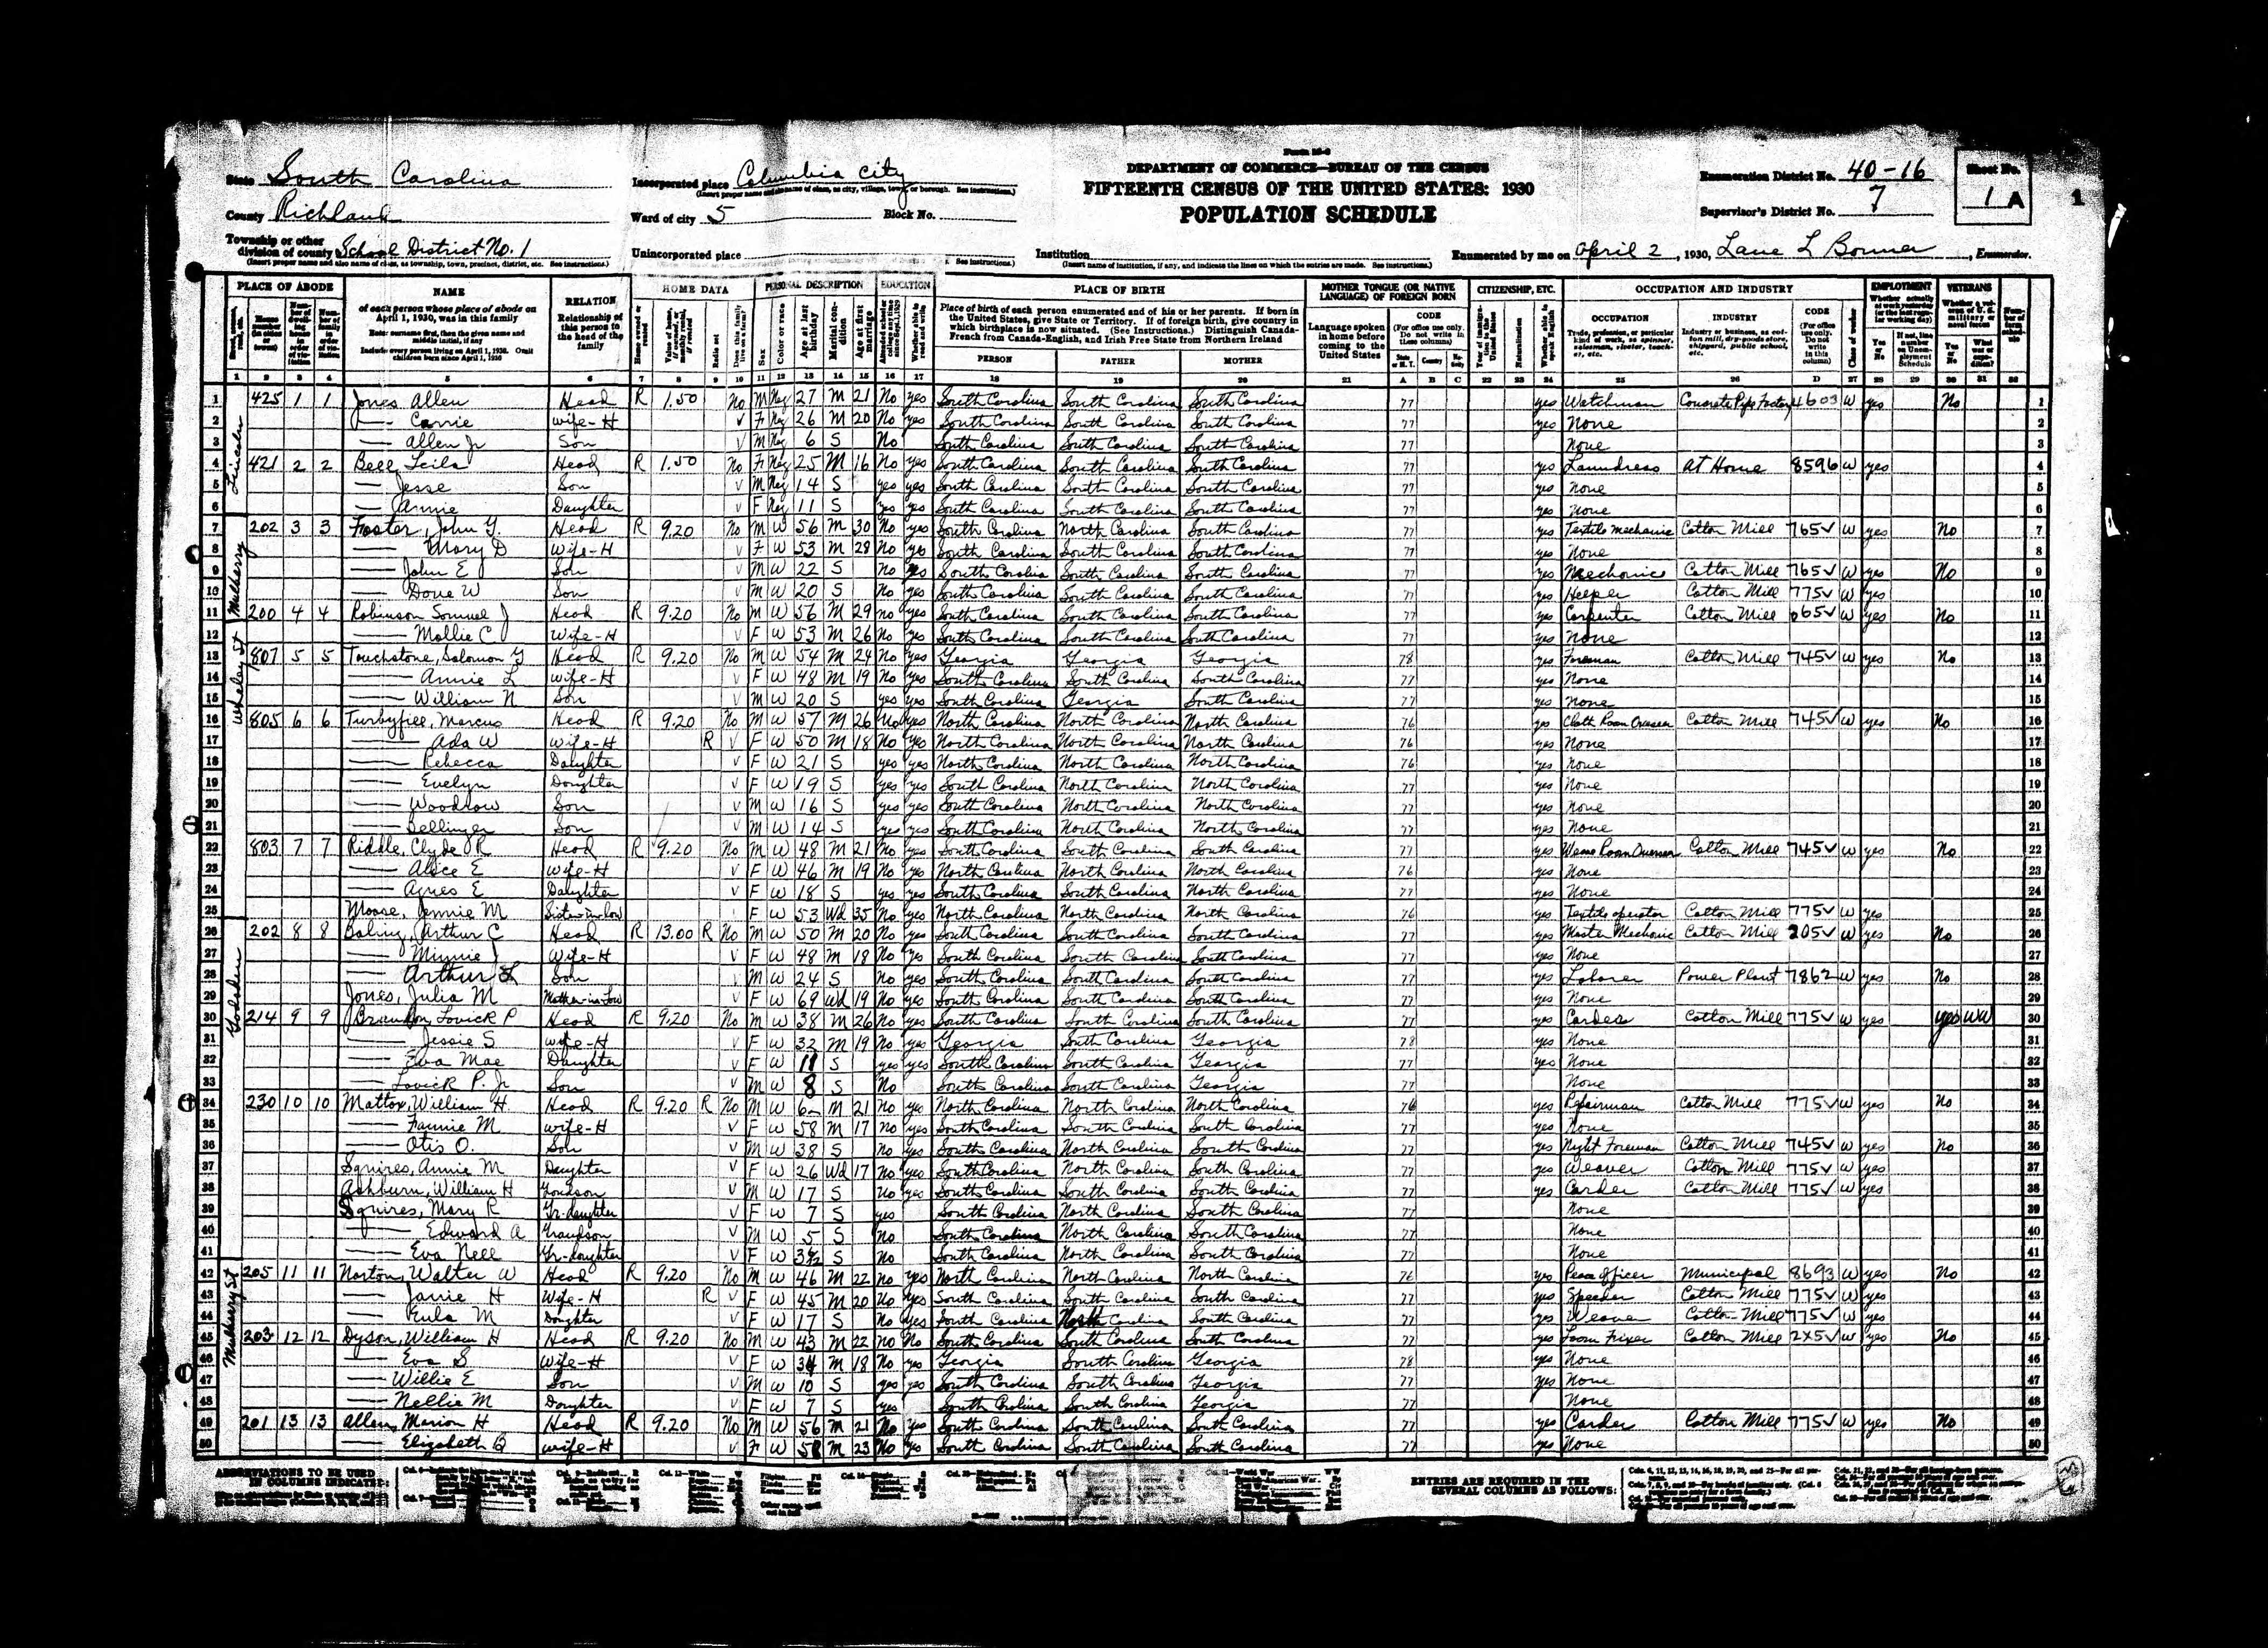 State South Carolina
County Richland
Township or other division of county School District No. 1
(Insert proper name and also name of class, as township, town, precinct, district, etc. See instructions.)
Incorporated place Columbia City
Ward of city 5 Block No.
Unincorporated place
DEPARTMENT OF COMMERCE—BUREAU OF THE CENSUS
FIFTEENTH CENSUS OF THE UNITED STATES: 1930
POPULATION SCHEDULE
Institution
(Insert name of institution, if any, and indicate the lines on which the entries are made. See instructions.)
Enumeration District No. 40-16
Supervisor's District No. 7
Sheet No. 1 A
1
Enumerated by me on April 2, 1930, Lane L Bonner, Enumerator.
PLACE OF ABODE NAME RELATION HOME DATA PERSONAL DESCRIPTION EDUCATION PLACE OF BIRTH MOTHER TONGUE (OR NATIVE LANGUAGE) OF FOREIGN BORN CITIZENSHIP, ETC. OCCUPATION AND INDUSTRY EMPLOYMENT VETERANS
PERSON FATHER MOTHER
1 2 3 4 5 6 7 8 9 10 11 12 13 14 15 16 17 18 19 20 21 A B C 22 23 24 25 26 D 27 28 29 30 31 32
1 425 1 1 Jones Allen Head R 1.50 No M Neg 27 M 21 No yes South Carolina South Carolina South Carolina 77 yes Watchman Concrete Pipe Factory 4603 W yes No 1
2 Carrie wife-H V F Neg 26 M 20 No yes South Carolina South Carolina South Carolina 77 yes None 2
3 Allen Jr Son V M Neg 6 S No South Carolina South Carolina South Carolina 77 None 3
4 421 2 2 Bell Leila Head R 1.50 No F Neg 25 M 16 No yes South Carolina South Carolina South Carolina 77 yes Laundress At Home 8596 W yes 4
5 Jesse Son V M Neg 14 S yes yes South Carolina South Carolina South Carolina 77 yes None 5
6 Annie Daughter V F Neg 11 S yes yes South Carolina South Carolina South Carolina 77 yes None 6
7 202 3 3 Foster, John G. Head R 9.20 No M W 56 M 30 No yes South Carolina North Carolina South Carolina 77 yes Textile mechanic Cotton Mill 765V W yes No 7
8 Mary D Wife-H V F W 53 M 28 No yes South Carolina South Carolina South Carolina 77 yes None 8
9 John E Son V M W 22 S No yes South Carolina South Carolina South Carolina 77 yes Mechanic Cotton Mill 765V W yes No 9
10 Dove W Son V M W 20 S No yes South Carolina South Carolina South Carolina 77 yes Helper Cotton Mill 775V W yes 10
11 200 4 4 Robinson Samuel J Head R 9.20 No M W 56 M 29 no yes South Carolina South Carolina South Carolina 77 yes Carpenter Cotton Mill 065V W yes No 11
12 Mollie C Wife-H V F W 53 M 26 No yes South Carolina South Carolina South Carolina 77 yes None 12
13 807 5 5 Touchstone, Solomon G Head R 9.20 No M W 54 M 24 No yes Georgia Georgia Georgia 78 yes Foreman Cotton Mill 745V W yes No 13
14 Annie L wife-H V F W 48 M 19 No yes South Carolina South Carolina South Carolina 77 yes None 14
15 William N Son V M W 20 S yes yes South Carolina Georgia South Carolina 77 yes None 15
16 805 6 6 Turbyfill, Marcus Head R 9.20 No M W 57 M 26 No yes North Carolina North Carolina North Carolina 76 yes Cloth Room Overseer Cotton Mill 745V W yes No 16
17 Ada W wife-H R V F W 50 M 18 No yes North Carolina North Carolina North Carolina 76 yes None 17
18 Rebecca Daughter V F W 21 S yes yes North Carolina North Carolina North Carolina 76 yes None 18
19 Evelyn Daughter V F W 19 S yes yes South Carolina North Carolina North Carolina 77 yes None 19
20 Woodrow Son V M W 16 S yes yes South Carolina North Carolina North Carolina 77 yes None 20
21 Bellinger Son V M W 14 S yes yes South Carolina North Carolina North Carolina 77 yes None 21
22 803 7 7 Riddle, Clyde R Head R 9.20 No M W 48 M 21 No yes South Carolina South Carolina South Carolina 77 yes Weave Room Overseer Cotton Mill 745V W yes No 22
23 Alice E wife-H V F W 46 M 19 No yes North Carolina North Carolina North Carolina 76 yes None 23
24 Agnes E Daughter V F W 18 S yes yes South Carolina South Carolina North Carolina 77 yes None 24
25 Moose, Jennie M Sister-in-law F W 53 Wd 35 No yes North Carolina North Carolina North Carolina 76 yes Textile operator Cotton Mill 775V W yes 25
26 202 8 8 Arthur C Head R 13.00 R No M W 50 M 20 No yes South Carolina South Carolina South Carolina 77 yes Master Mechanic Cotton Mill 205V W yes No 26
27 Minnie J Wife-H V F W 48 M 18 No yes South Carolina South Carolina South Carolina 77 yes None 27
28 Arthur L Son M W 24 S No yes South Carolina South Carolina South Carolina 77 yes Laborer Power Plant 7862 W yes No 28
29 Jones, Julia M Mother-in-Law V F W 69 Wd 19 No yes South Carolina South Carolina South Carolina 77 yes None 29
30 214 9 9 Brandon, Lovick P Head R 9.20 No M W 38 M 26 No yes South Carolina South Carolina South Carolina 77 yes Carder Cotton Mill 775V W yes yes WW 30
31 Jessie S wife-H V F W 32 M 19 No yes Georgia South Carolina Georgia 78 yes None 31
32 Eva Mae Daughter V F W 11 S yes yes South Carolina South Carolina Georgia 77 yes None 32
33 Lovick P. Jr Son V M W 8 S No South Carolina South Carolina Georgia 77 None 33
34 230 10 10 Mattox, William H. Head R 9.20 R No M W M 21 No yes North Carolina North Carolina North Carolina 76 yes Repairman Cotton Mill 775V W yes No 34
35 Fannie M wife-H V F W 58 M 17 no yes South Carolina South Carolina South Carolina 77 yes None 35
36 Otis O. Son V M W 38 S no yes South Carolina North Carolina South Carolina 77 yes Night Foreman Cotton Mill 745V W yes No 36
37 Squires, Annie M Daughter V F W 26 Wd 17 No yes South Carolina North Carolina South Carolina 77 yes Weaver Cotton Mill 775V W yes 37
38 Ashburn, William H Grandson V M W 17 S no yes South Carolina South Carolina South Carolina 77 yes Carder Cotton Mill 775V W yes 38
39 Squires, Mary R Gr-daughter V F W 7 S yes South Carolina North Carolina South Carolina 77 None 39
40 Edward A Grandson V M W 5 S no South Carolina North Carolina South Carolina 77 None 40
41 Eva Nell Gr-daughter V F W S No South Carolina North Carolina South Carolina 77 None 41
42 205 11 11 Norton, Walter W Head R 9.20 No M W 46 M 22 no yes North Carolina North Carolina North Carolina 76 yes Peace Officer Municipal 8693 W yes No 42
43 Janie H Wife-H R V F W 45 M 20 No yes South Carolina South Carolina South Carolina 77 yes Speeder Cotton Mill 775V W yes 43
44 Eula M Daughter V F W 17 S No yes South Carolina North Carolina South Carolina 77 yes Weaver Cotton Mill 775V W yes 44
45 203 12 12 Dyson, William H Head R 9.20 No M W 43 M 22 no No South Carolina South Carolina South Carolina 77 yes Loom Fixer Cotton Mill 2X5V W yes No 45
46 Eva S Wife-H V F W 34 M 18 No yes Georgia South Carolina Georgia 78 yes None 46
47 Willie E Son V M W 10 S yes yes South Carolina South Carolina Georgia 77 yes None 47
48 Nellie M Daughter V F W 7 S yes South Carolina South Carolina Georgia 77 None 48
49 201 13 13 Allen, Marion H Head R 9.20 No M W 56 M 21 No yes South Carolina South Carolina South Carolina 77 yes Carder Cotton Mill 775V W yes No 49
50 Elizabeth B wife-H V F W M 23 No yes South Carolina South Carolina South Carolina 77 yes None 50
Lincoln
Mulberry
Whaley St
Mulberry St
ABBREVIATIONS TO BE USED IN COLUMNS INDICATED:
ENTRIES ARE REQUIRED IN THE SEVERAL COLUMNS AS FOLLOWS: